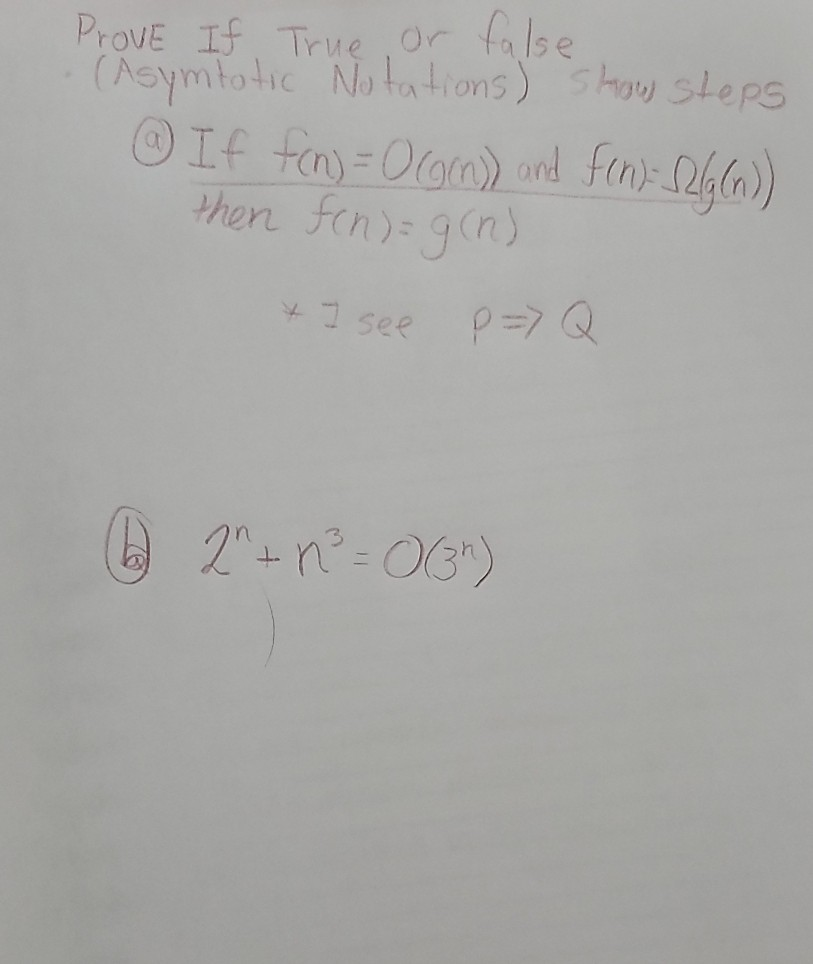 ProvE If True or false
(Asymtotic Notations) show steps
ⓐ If f(n) = O(g(n)) and f(n) = Ω(g(n))
then f(n) = g(n)
* I see P => Q
ⓑ 2ⁿ + n³ = O(3ⁿ)